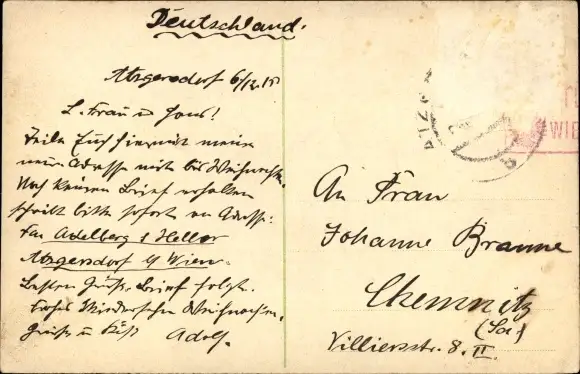 Deutschland.
Atzgersdorf 6/12.15
L. Frau u Hans!
Teile Euch hiermit meine
neue Adresse mit bis Weihnachten.
Noch keinen Brief erhalten
schreibt bitte sofort an Adresse:
Fa. Adelberg & Heller
Atzgersdorf b/ Wien.
Besten Gruß. Brief folgt.
Frohes Wiedersehn Weihnachten.
Gruß u Kuß Adolf.
WIE
An Frau
Johanne Braune
Chemnitz
(Sa)
Villierstr. 8. II